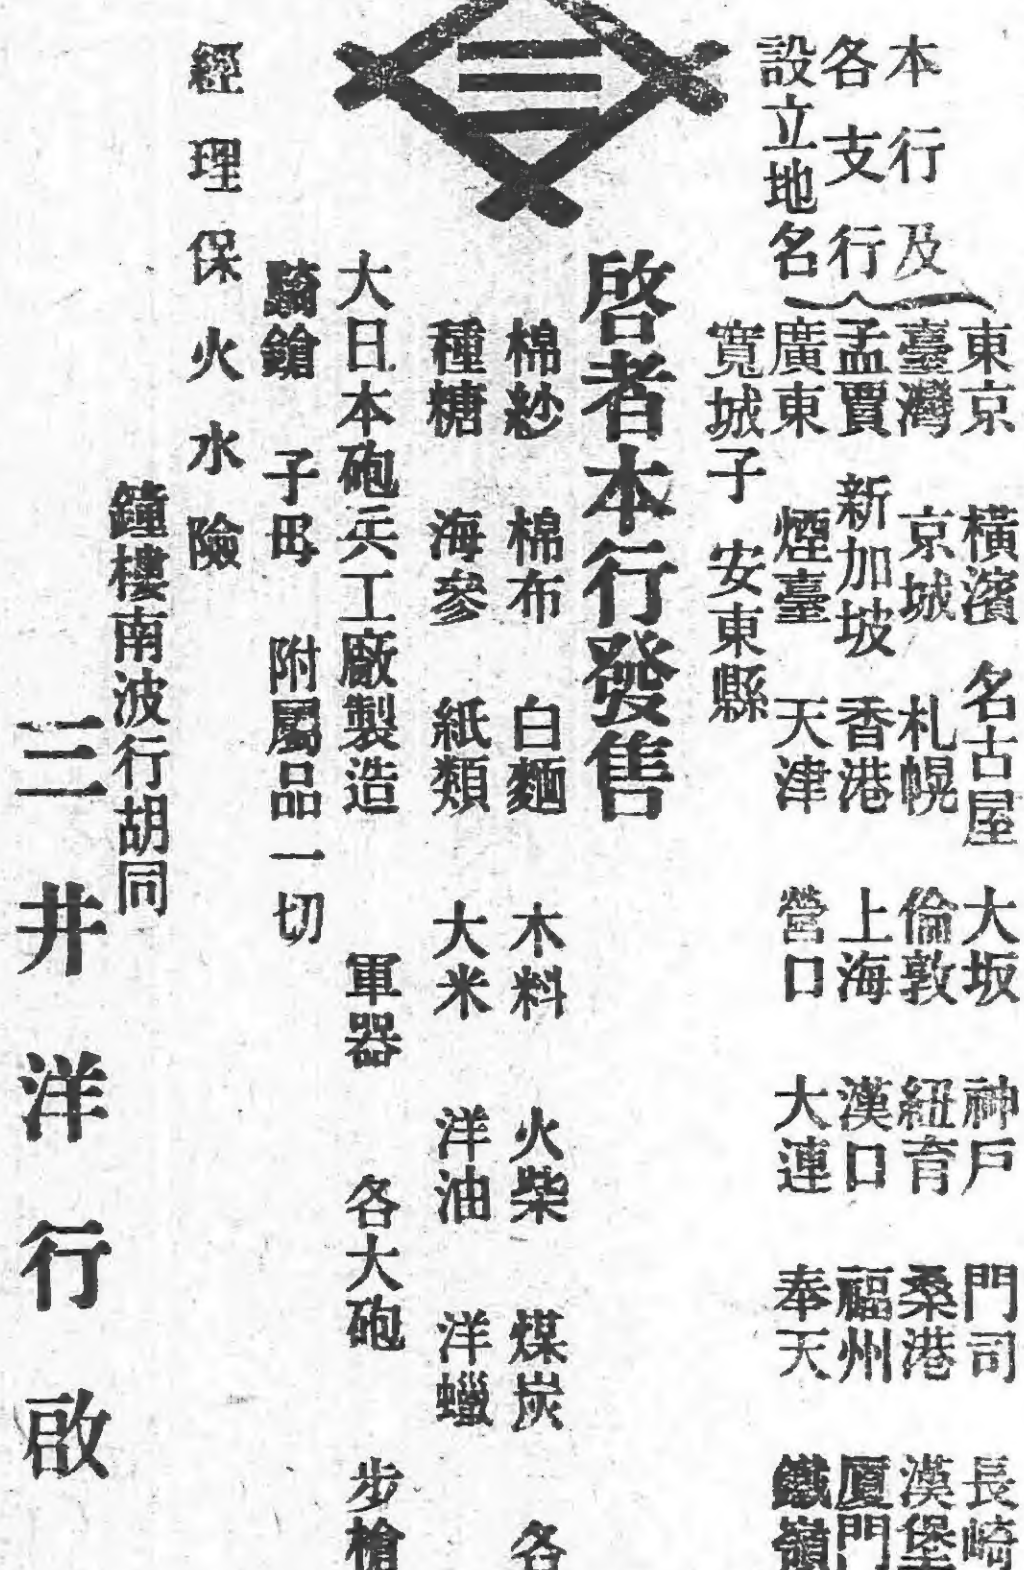 本行及
各支行
設立地名
東京 橫濱 名古屋 大坂 神戶 門司 長崎
臺灣 京城 札幌 倫敦 紐育 桑港 漢堡
孟買 新加坡 香港 上海 漢口 福州 厦門
廣東 煙臺 天津 營口 大連 奉天 鐵嶺
寬城子 安東縣
啓者本行發售
棉紗 棉布 白麵 木料 火柴 煤炭 各
種糖 海參 紙類 大米 洋油 洋蠟
大日本砲兵工廠製造 軍器 各大砲 步槍
騎鎗 子母 附屬品一切
經理保火水險
鐘樓南波行胡同
三井洋行啟